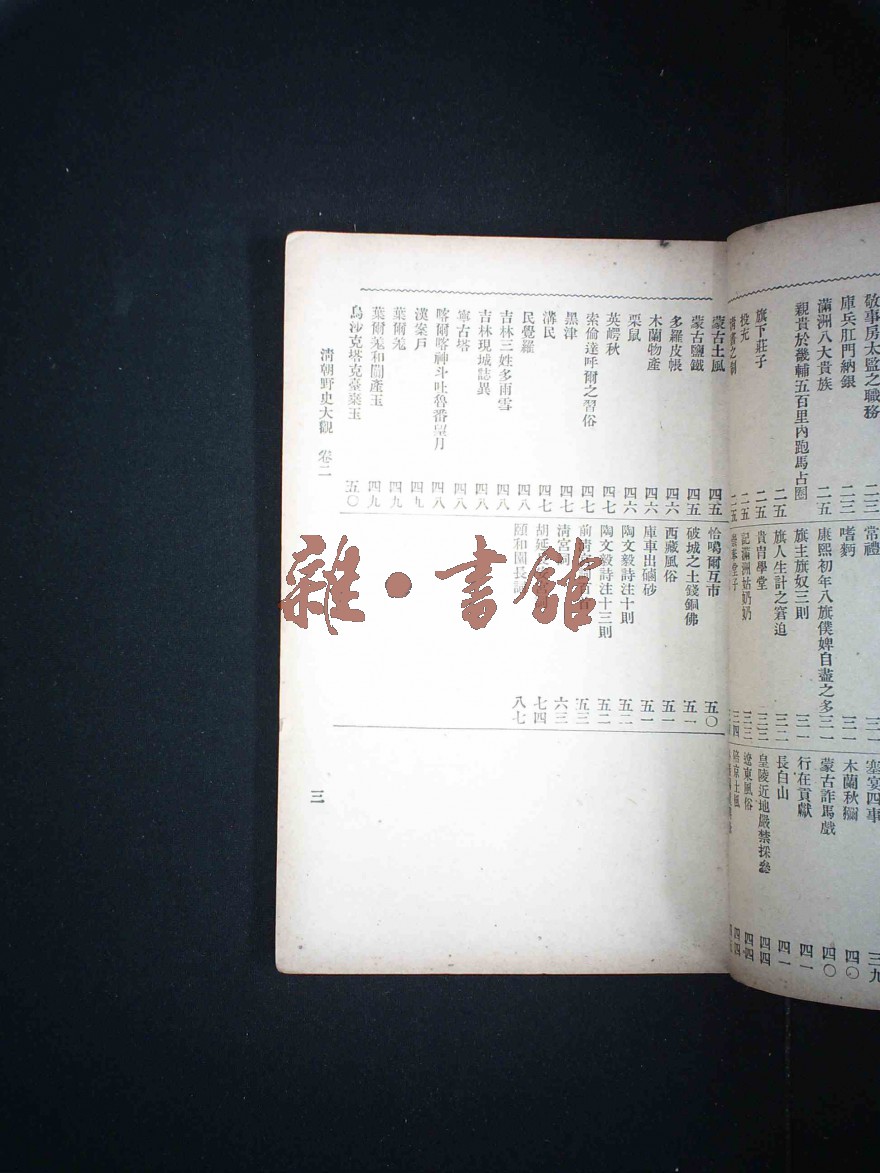 敬事房太監之職務 二三
庫兵肛門納銀 二三
滿洲八大貴族 二五
親貴於畿輔五百里內跑馬占圈 二五
旗下莊子 二五
投充 二五
二五
常禮 三一
嗜夠 三一
康熙初年八旗僕婢自盡之多 三一
旗主旗奴三則 三一
旗人生計之窘迫 三二
貴胄學堂 三三
記滿洲姑奶奶 三三
堂子 三四
塞宴四事 三九
木蘭秋獮 四〇
蒙古詐馬戲 四〇
行在貢獻 四一
長白山 四一
皇陵近地嚴禁採參 四四
遼東風俗 四四
陪京土風 四四
蒙古土風 四五
蒙古鹽鐵 四五
多羅皮帳 四六
木蘭物產 四六
栗鼠 四六
英崿秋 四七
索倫達呼爾之習俗 四七
黑津 四七
溝民 四七
民覺羅 四八
吉林三姓多雨雪 四八
吉林現城誌異 四八
寧古塔 四八
喀爾喀神斗吐魯番望月 四八
漢案戶 四九
葉爾羌 四九
葉爾羌和闐產玉 四九
烏沙克塔克臺棄玉 五〇
恰噶爾互市 五〇
破城之土錢銅佛 五一
西藏風俗 五一
庫車出硇砂 五一
陶文毅詩注十則 五二
陶文毅詩注十三則 五二
前清 五三
清宮詞 六三
胡延 七四
頤和園長 八七
清朝野史大觀 卷二
三
雜·書館